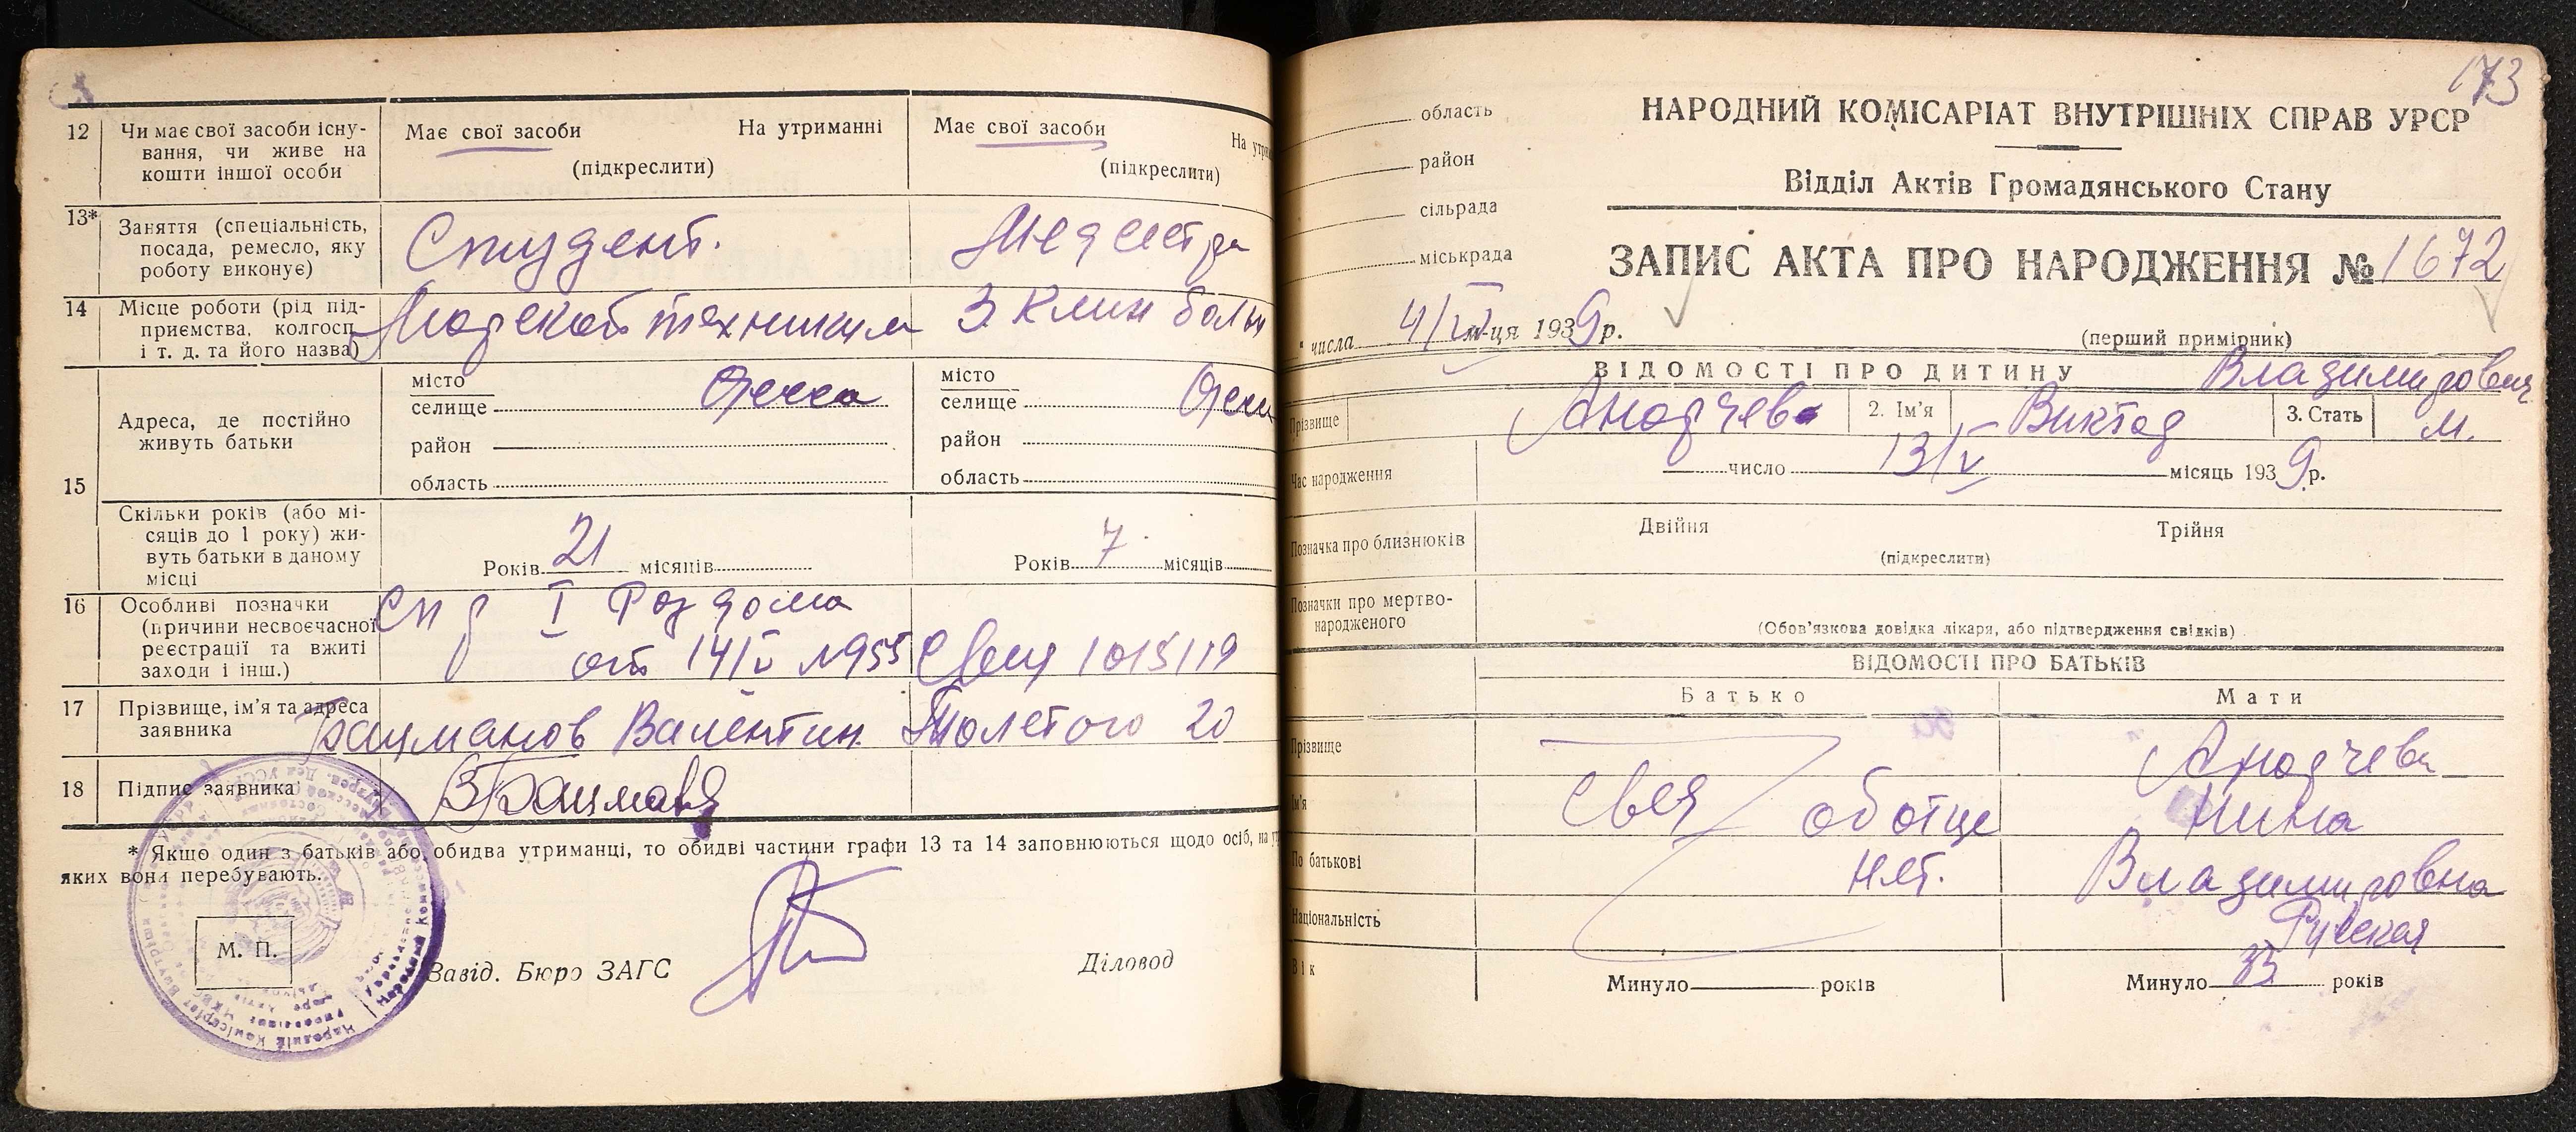 12 Чи має свої засоби існу-
вання, чи живе на
кошти іншої особи
Має свої засоби На утриманні
(підкреслити)
Має свої засоби
На утри
(підкреслити)
13* Заняття (спеціальність,
посада, ремесло, яку
роботу виконує)
Студент.
Медсестра
14 Місце роботи (рід під-
приємства, колгосп
і т. д. та його назва)
Морской техникум
3 Клин больн
15 Адреса, де постійно
живуть батьки
місто
селище Одесса
район
область
місто
селище
район
область
Скільки років (або мі-
сяців до 1 року) жи-
вуть батьки в даному
місці
Років 21 місяців
Років 7 місяців
16 Особливі позначки
(причини несвоєчасної
реєстрації та вжиті
заходи і інш.)
I Роддома
от 14/V №955
1015119
17 Прізвище, ім'я та адреса
заявника
Брацманов Валентин Толстого 20
18 Підпис заявника
* Якщо один з батьків або обидва утриманці, то обидві частини графи 13 та 14 заповнюються щодо осіб, на
яких вони перебувають.
М. П.
Завід. Бюро ЗАГС
Діловод
173
область
район
сільрада
міськрада
НАРОДНИЙ КОМІСАРІАТ ВНУТРІШНІХ СПРАВ УРСР
Відділ Актів Громадянського Стану
ЗАПИС АКТА ПРО НАРОДЖЕННЯ № 1672
" числа м-ця 1939 р.
(перший примірник)
ВІДОМОСТІ ПРО ДИТИНУ
Владимирович
Прізвище 2. Ім'я Виктор 3. Стать м.
Час народження
число 13/V місяць 1939 р.
Позначка про близнюків
Двійня Трійня
(підкреслити)
Позначки про мертво-
народженого
(Обов'язкова довідка лікаря, або підтвердження свідків)
ВІДОМОСТІ ПРО БАТЬКІВ
Батько Мати
Прізвище
Ім'я
об отце Нина
По батькові
нет. Владимировна
Національність
Русская
Вік
Минуло років
Минуло 33 років